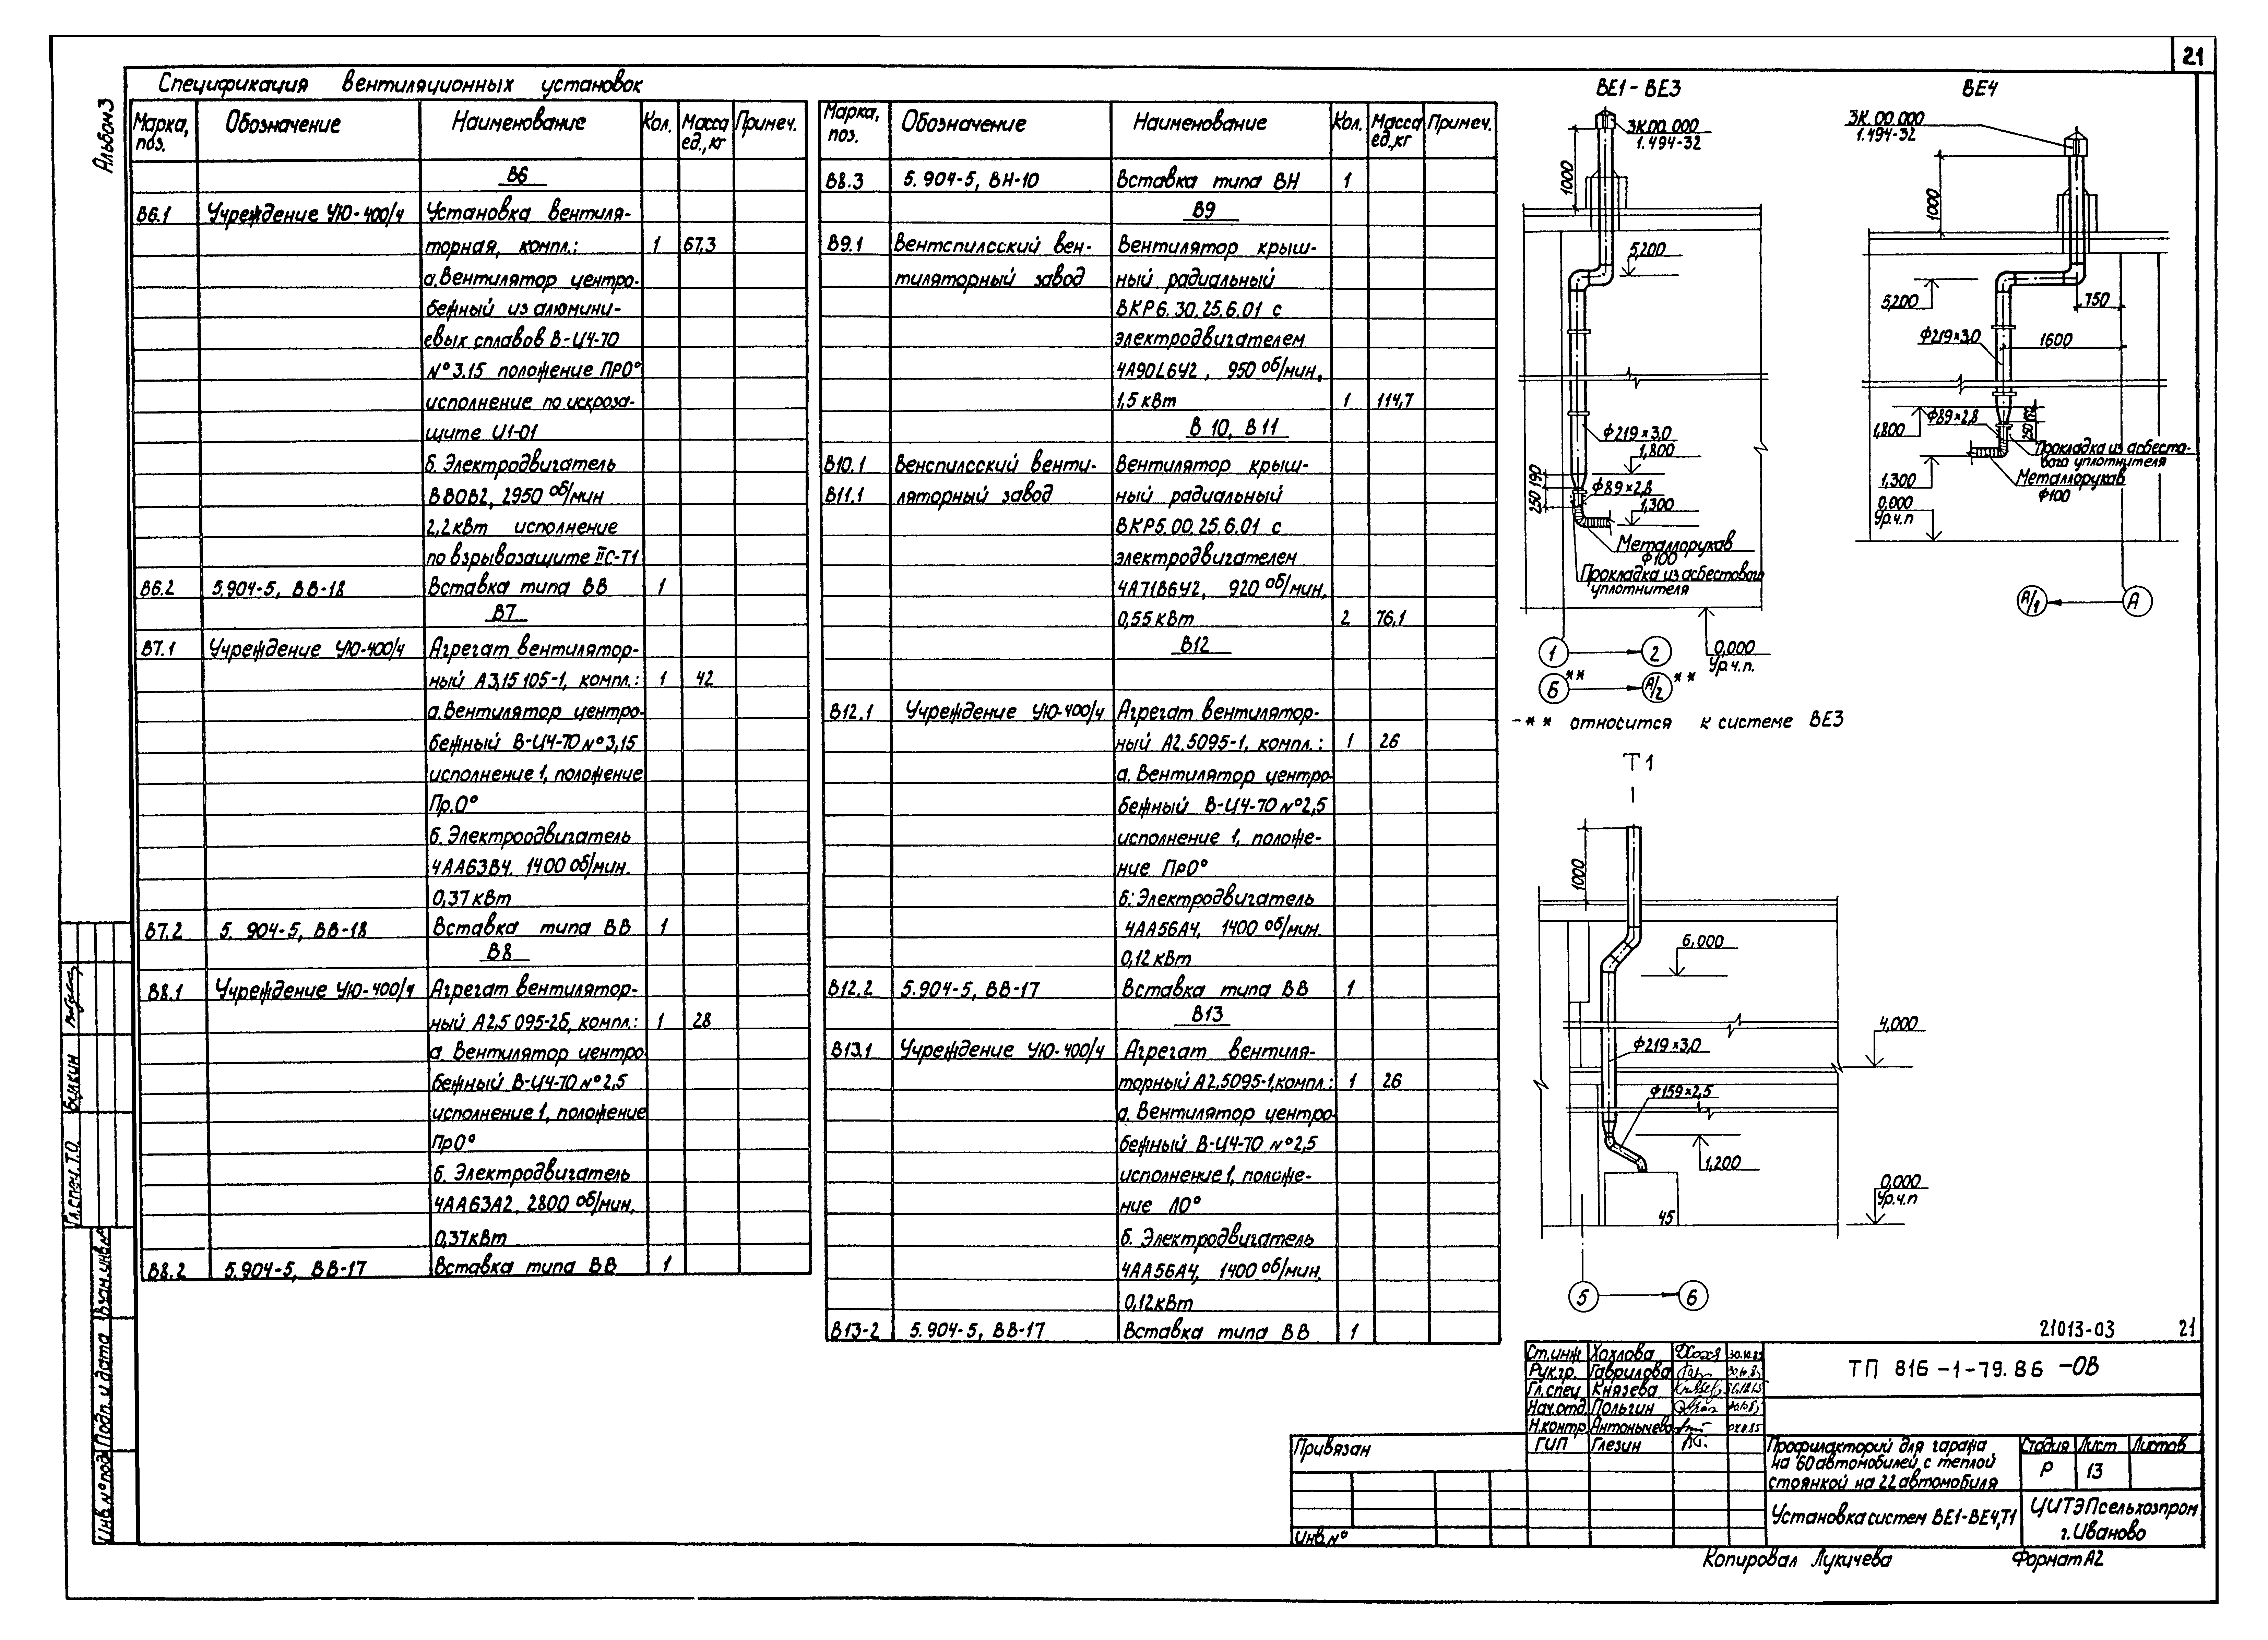 21
Альбом 3
Спецификация вентиляционных установок
Марка, поз. Обозначение Наименование Кол. Масса ед., кг Примеч.
В6
В6.1 Учреждение УЮ-400/4 Установка вентиля-
торная, компл.: 1 67,3
а. Вентилятор центро-
бежный из алюмини-
евых сплавов В-Ц4-70
№ 3.15 положение ПР0°
исполнение по искроза-
щите И1-01
б. Электродвигатель
ВВ0В2, 2950 об/мин
2,2 кВт исполнение
по взрывозащите IIС-Т1
В6.2 5.904-5, ВВ-18 Вставка типа ВВ 1
В7
В7.1 Учреждение УЮ-400/4 Агрегат вентилятор-
ный А3,15 105-1, компл.: 1 42
а. Вентилятор центро-
бежный В-Ц4-70 № 3,15
исполнение 1, положение
Пр.0°
б. Электроодвигатель
4АА63В4. 1400 об/мин.
0,37 кВт
В7.2 5. 904-5, ВВ-18 Вставка типа ВВ 1
В8
В8.1 Учреждение УЮ-400/4 Агрегат вентилятор-
ный А2,5 095-2б, компл.: 1 28
а. Вентилятор центро
бежный В-Ц4-70 № 2,5
исполнение 1, положение
Пр0°
б. Электродвигатель
4АА63А2, 2800 об/мин.
0,37 кВт
В8.2 5.904-5, ВВ-17 Вставка типа ВВ 1
Марка, поз. Обозначение Наименование Кол. Масса ед., кг Примеч.
В8.3 5.904-5, ВН-10 Вставка типа ВН 1
В9
В9.1 Вентспилсский вен- Вентилятор крыш-
тиляторный завод ный радиальный
ВКР6.30.25.6.01 с
электродвигателем
4А90L6У2, 950 об/мин,
1,5 кВт 1 114,7
В 10, В 11
В10.1 Венспилсский венти- Вентилятор крыш-
В11.1 ляторный завод ный радиальный
ВКР5.00.25.6.01 с
электродвигателем
4А71В6У2, 920 об/мин,
0,55 кВт 2 76,1
В12
В12.1 Учреждение УЮ-400/4 Агрегат вентилятор-
ный А2.5095-1, компл.: 1 26
а. Вентилятор центро-
бежный В-Ц4-70 № 2,5
исполнение 1, положе-
ние Пр0°
б. Электродвигатель
4АА56А4, 1400 об/мин.
0,12 кВт
В12.2 5.904-5, ВВ-17 Вставка типа ВВ 1
В13
В13.1 Учреждение УЮ-400/4 Агрегат вентиля-
торный А2,5095-1, компл.: 1 26
а. Вентилятор центро-
бежный В-Ц4-70 № 2,5
исполнение 1, положе-
ние Л0°
б. Электродвигатель
4АА56А4, 1400 об/мин.
0,12 кВт
В13-2 5.904-5, ВВ-17 Вставка типа ВВ 1
ВЕ1-ВЕ3
ЗК.00.000
1.494-32
1000
5,200
ф219×3,0
1,800
190
250
ф89×2,8
1,300
Металлорукав
ф100
Прокладка из асбестового
уплотнителя
0,000
Ур.ч.п.
1 2
Б ** А/2 **
-** относится к системе ВЕ3
ВЕ4
ЗК.00.000
1.494-32
1000
5,200
750
ф219×3,0
1600
ф89×2,8
1,800
250
Прокладка из асбесто-
вого уплотнителя
1,300
Металлорукав
ф100
0,000
Ур.ч.п
А/1 А
Т1
1000
6,000
4,000
ф219×3,0
ф159×2,5
1,200
0,000
Ур.ч.п
45
5 6
21013-03 21
Ст.инж Хохлова
Рук.гр. Гаврилова
Гл.спец Князева
Нач.отд Польгин
Н.контр Антонычева
ГИП Глезин
ТП 816-1-79.86 -ОВ
Привязан
Инв.№
Профилакторий для гаража
на 60 автомобилей с теплой
стоянкой на 22 автомобиля
Стадия Лист Листов
Р 13
Установка систем ВЕ1-ВЕ4,Т1
ЦИТЭПсельхозпром
г. Иваново
Копировал Лукичева Формат А2
Гл.спец. Т.О. Белкин
Взам.инв.№
Подп. и дата
Инв.№ подл